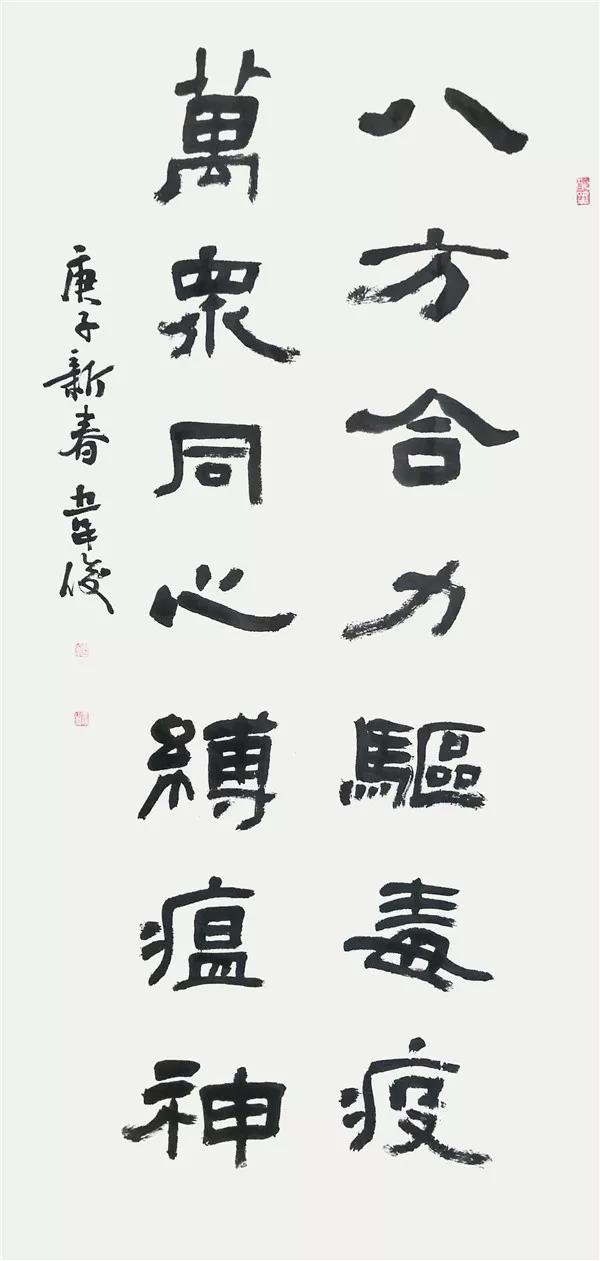 八方合力驅毒疫
萬眾同心縛瘟神
庚子新春 韋俊